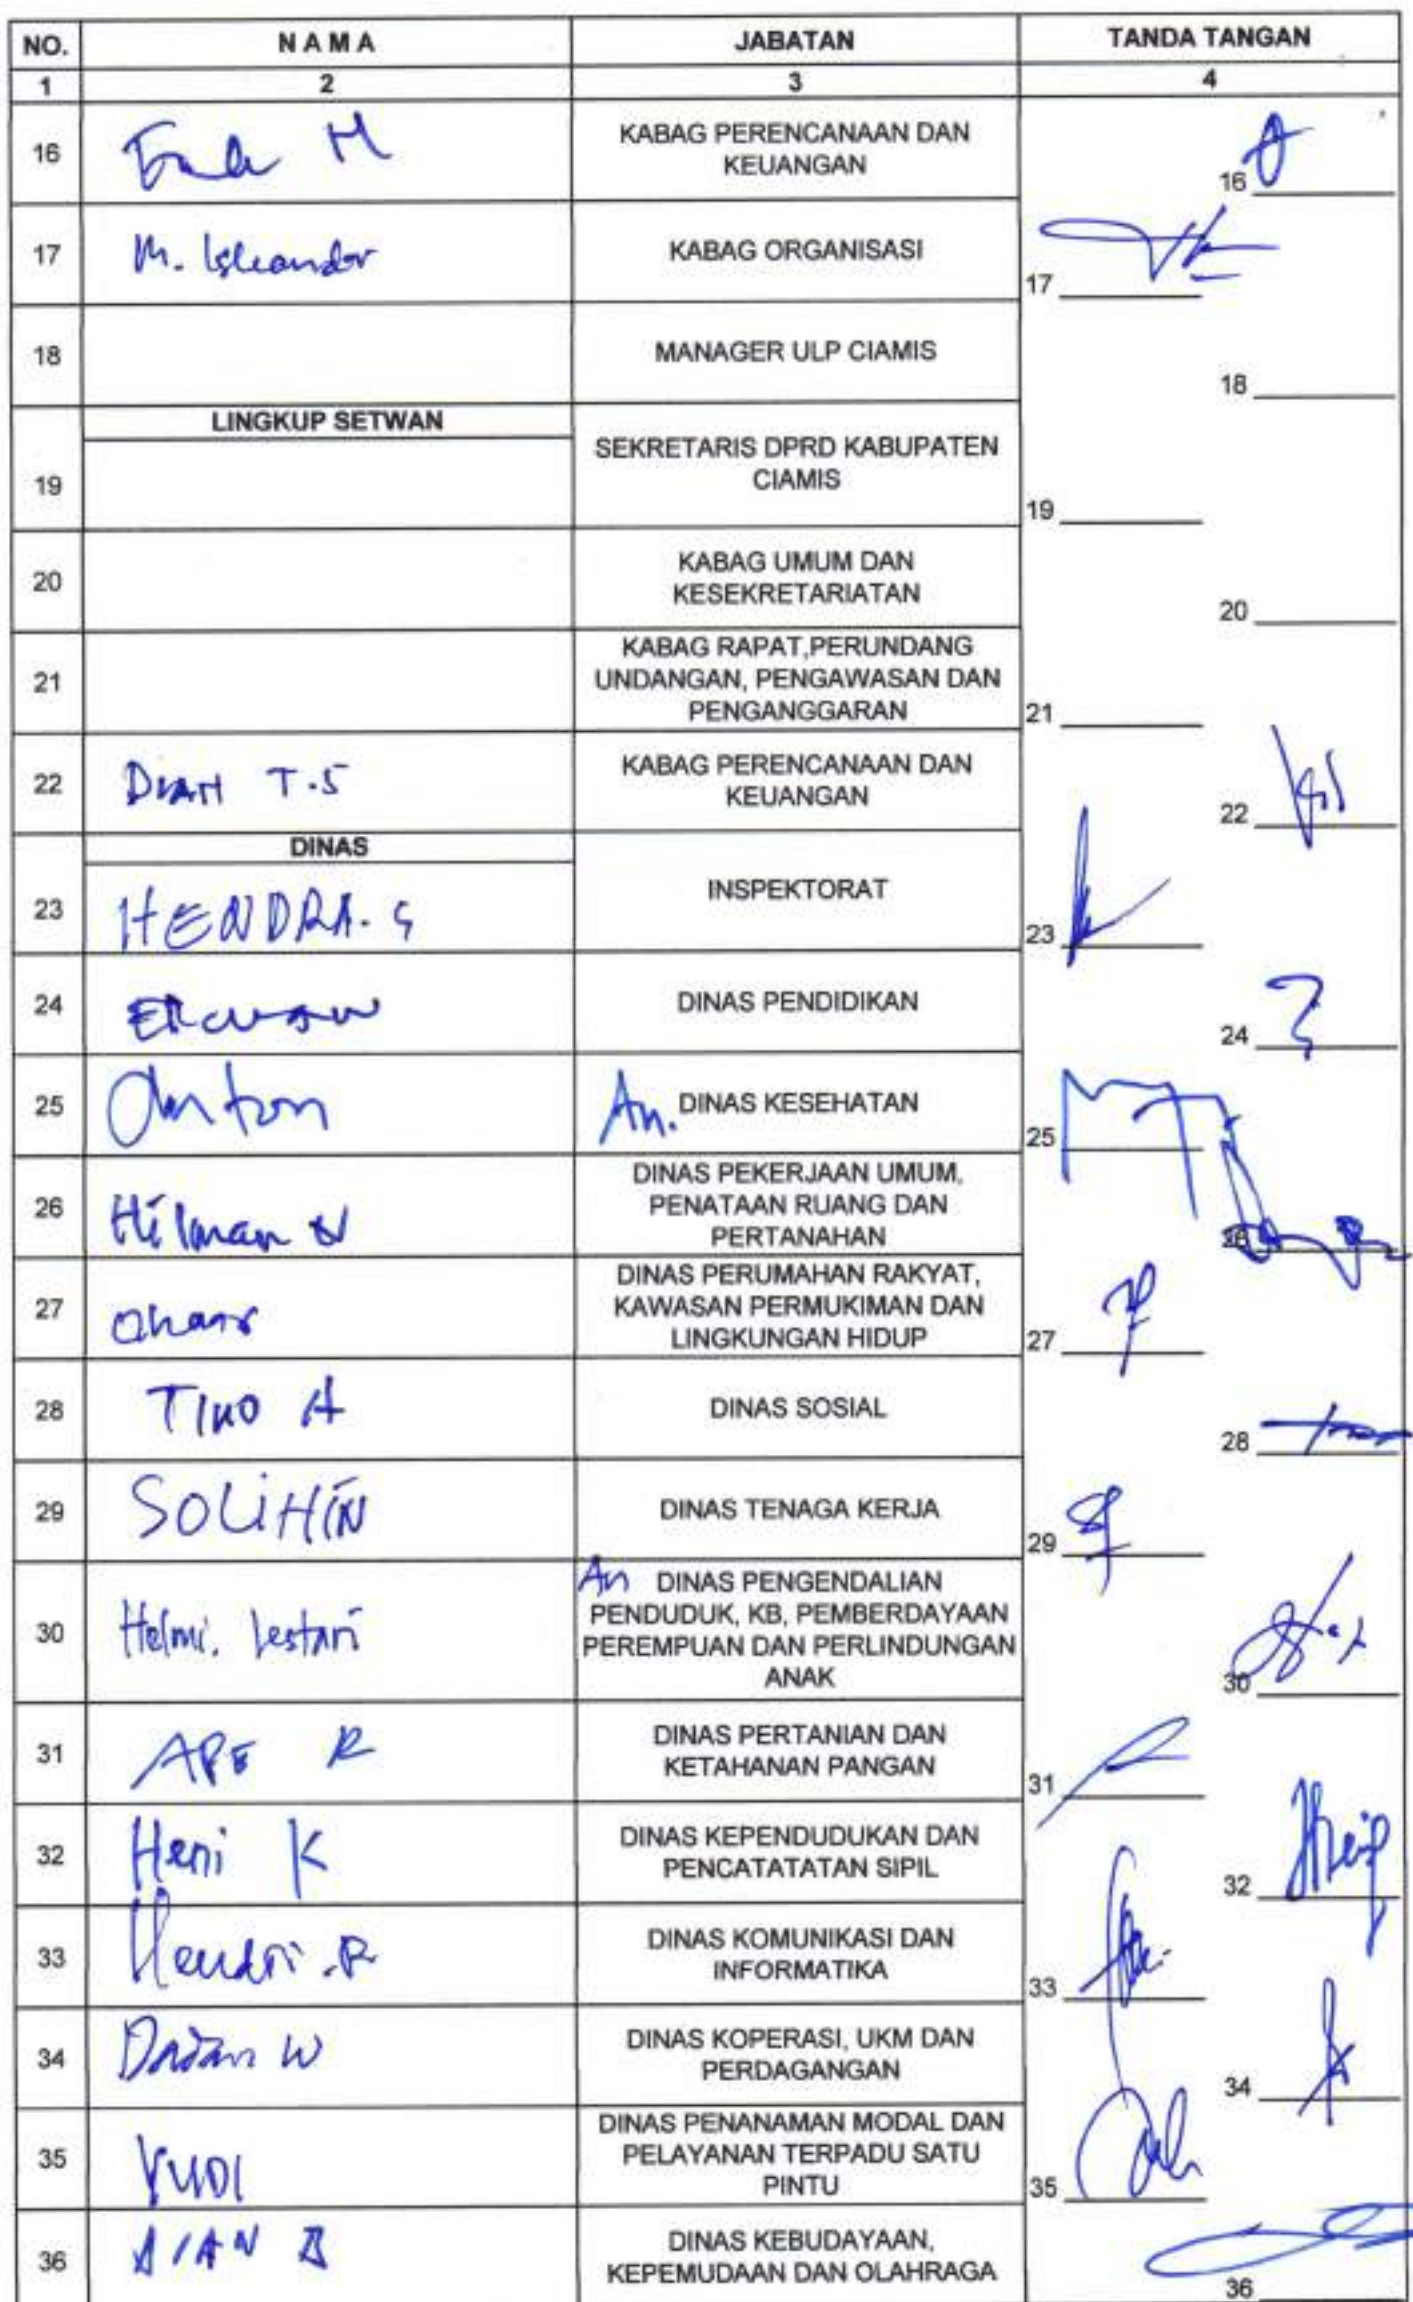 NO. N A M A JABATAN TANDA TANGAN
1 2 3 4
16 M KABAG PERENCANAAN DAN
KEUANGAN 16
17 M. Iskandar KABAG ORGANISASI 17
18 MANAGER ULP CIAMIS 18
LINGKUP SETWAN
19 SEKRETARIS DPRD KABUPATEN
CIAMIS 19
20 KABAG UMUM DAN
KESEKRETARIATAN 20
21 KABAG RAPAT,PERUNDANG
UNDANGAN, PENGAWASAN DAN
PENGANGGARAN 21
22 DIAN T.S KABAG PERENCANAAN DAN
KEUANGAN 22
DINAS
23 HENDRA. S INSPEKTORAT 23
24 DINAS PENDIDIKAN 24
25 Anton An. DINAS KESEHATAN 25
26 Hilman N DINAS PEKERJAAN UMUM,
PENATAAN RUANG DAN
PERTANAHAN 26
27 DINAS PERUMAHAN RAKYAT,
KAWASAN PERMUKIMAN DAN
LINGKUNGAN HIDUP 27
28 TINO A DINAS SOSIAL 28
29 SOLIHIN DINAS TENAGA KERJA 29
30 Helmi. Lestari An DINAS PENGENDALIAN
PENDUDUK, KB, PEMBERDAYAAN
PEREMPUAN DAN PERLINDUNGAN
ANAK 30
31 APE R DINAS PERTANIAN DAN
KETAHANAN PANGAN 31
32 Heni K DINAS KEPENDUDUKAN DAN
PENCATATATAN SIPIL 32
33 Hendri .R DINAS KOMUNIKASI DAN
INFORMATIKA 33
34 Dadan W DINAS KOPERASI, UKM DAN
PERDAGANGAN 34
35 YUDI DINAS PENANAMAN MODAL DAN
PELAYANAN TERPADU SATU
PINTU 35
36 DIAN B DINAS KEBUDAYAAN,
KEPEMUDAAN DAN OLAHRAGA 36